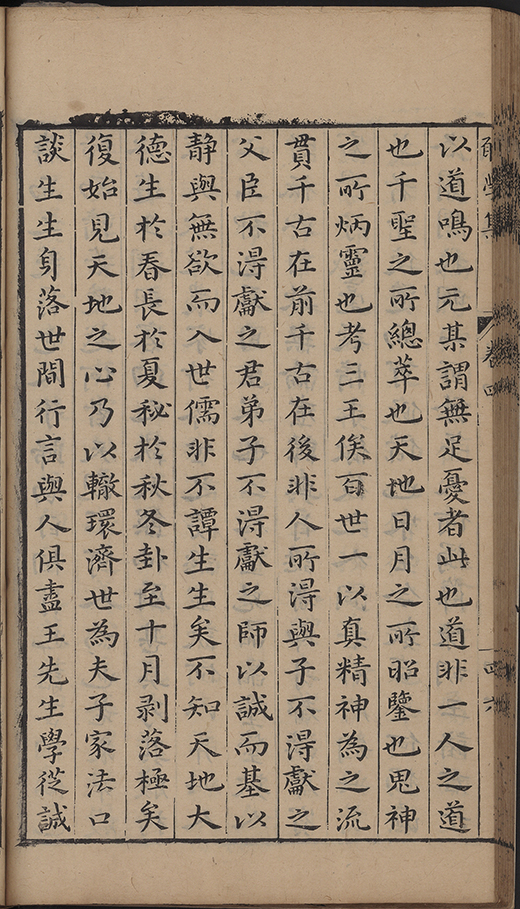 以道鳴也元某謂無足憂者此也道非一人之道
也千聖之所總萃也天地日月之所昭鑒也鬼神
之所炳靈也考三王俟百世一以真精神為之流
貫千古在前千古在後非人所得與子不得獻之
父臣不得獻之君弟子不得獻之師以誠而基以
靜與無欲而入世儒非不譚生生矣不知天地大
德生於春長於夏秘於秋冬卦至十月剥落極矣
復始見天地之心乃以轍環濟世為夫子家法口
談生生身落世間行言與人俱盡王先生學從誠